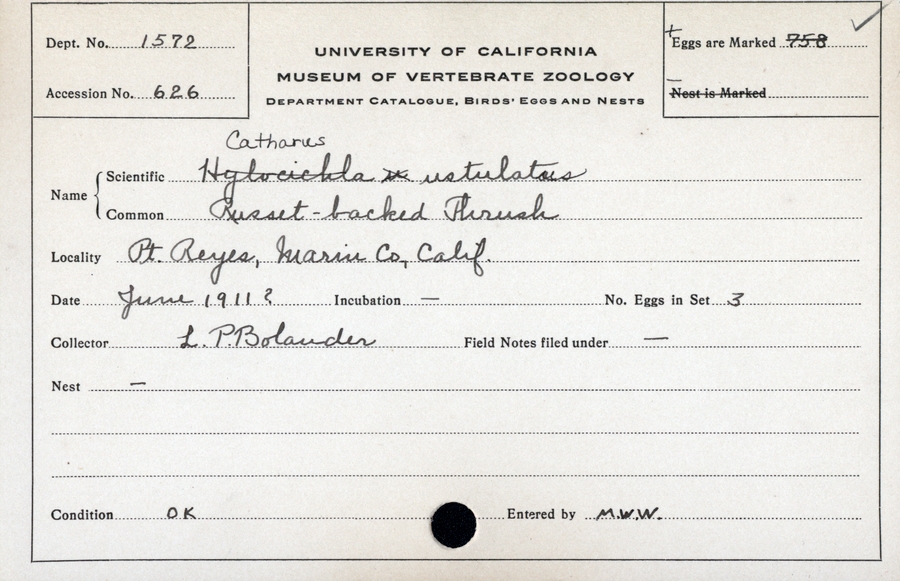 Dept. No. 1572
Accession No. 626
UNIVERSITY OF CALIFORNIA
MUSEUM OF VERTEBRATE ZOOLOGY
DEPARTMENT CATALOGUE, BIRDS' EGGS AND NESTS
+ Eggs are Marked 758
— Nest is Marked
Catharus
Name
Scientific Hylocichla u ustulatus
Common Russet-backed Thrush
Locality Pt. Reyes, Marin Co., Calif.
Date June 1911? Incubation — No. Eggs in Set 3
Collector L. P. Bolander Field Notes filed under —
Nest —
Condition OK Entered by M.W.W.